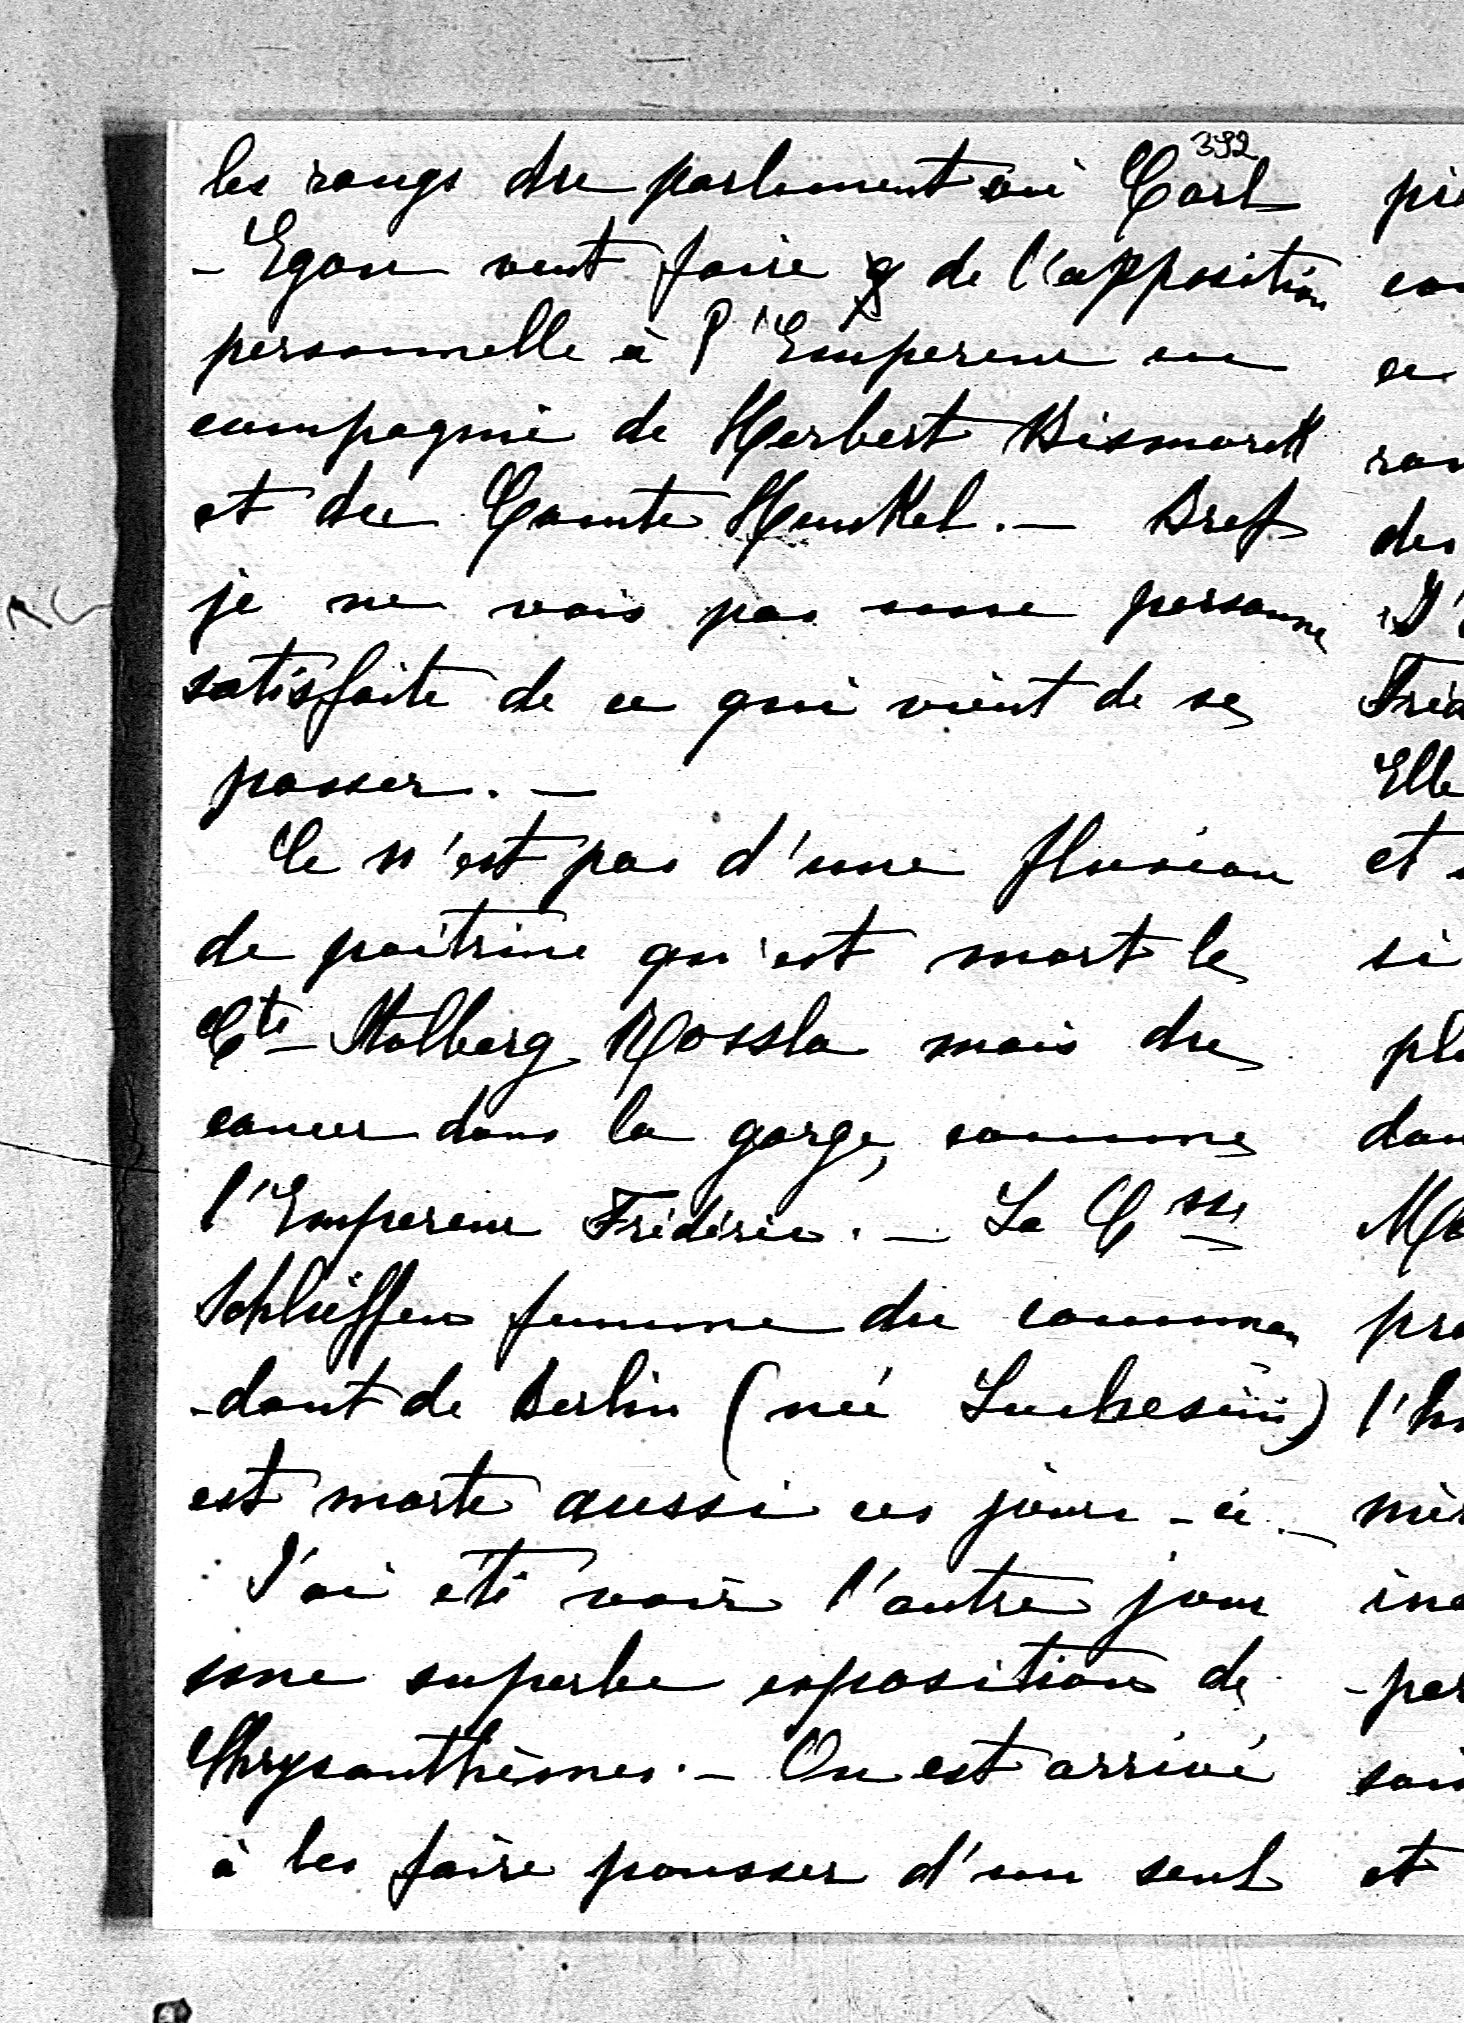 392
les rangs du parlement où Carl
- Egon veut faire de l'opposition
personnelle à l'Empereur en
compagnie de Herbert Bismarck
et du Comte Henkel. — Bref
je ne vois pas une personne
satisfaite de ce qui vient de se
passer. —
Ce n'est pas d'une fluxion
de poitrine qu'est mort le
Cte Stolberg Rossla mais du
cancer dans la gorge, comme
l'Empereur Frédéric. — La Csse
Schlieffen femme du comman
-dant de Berlin (née Luchesini)
est morte aussi ces jours-ci. —
J'ai été voir l'autre jour
une superbe exposition de
Chrysanthèmes. — On est arrivé
à les faire pousser d'un seul